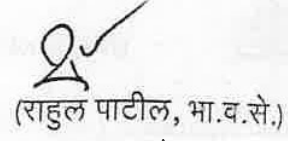 (राहुल पाटील, भा.व.से.)